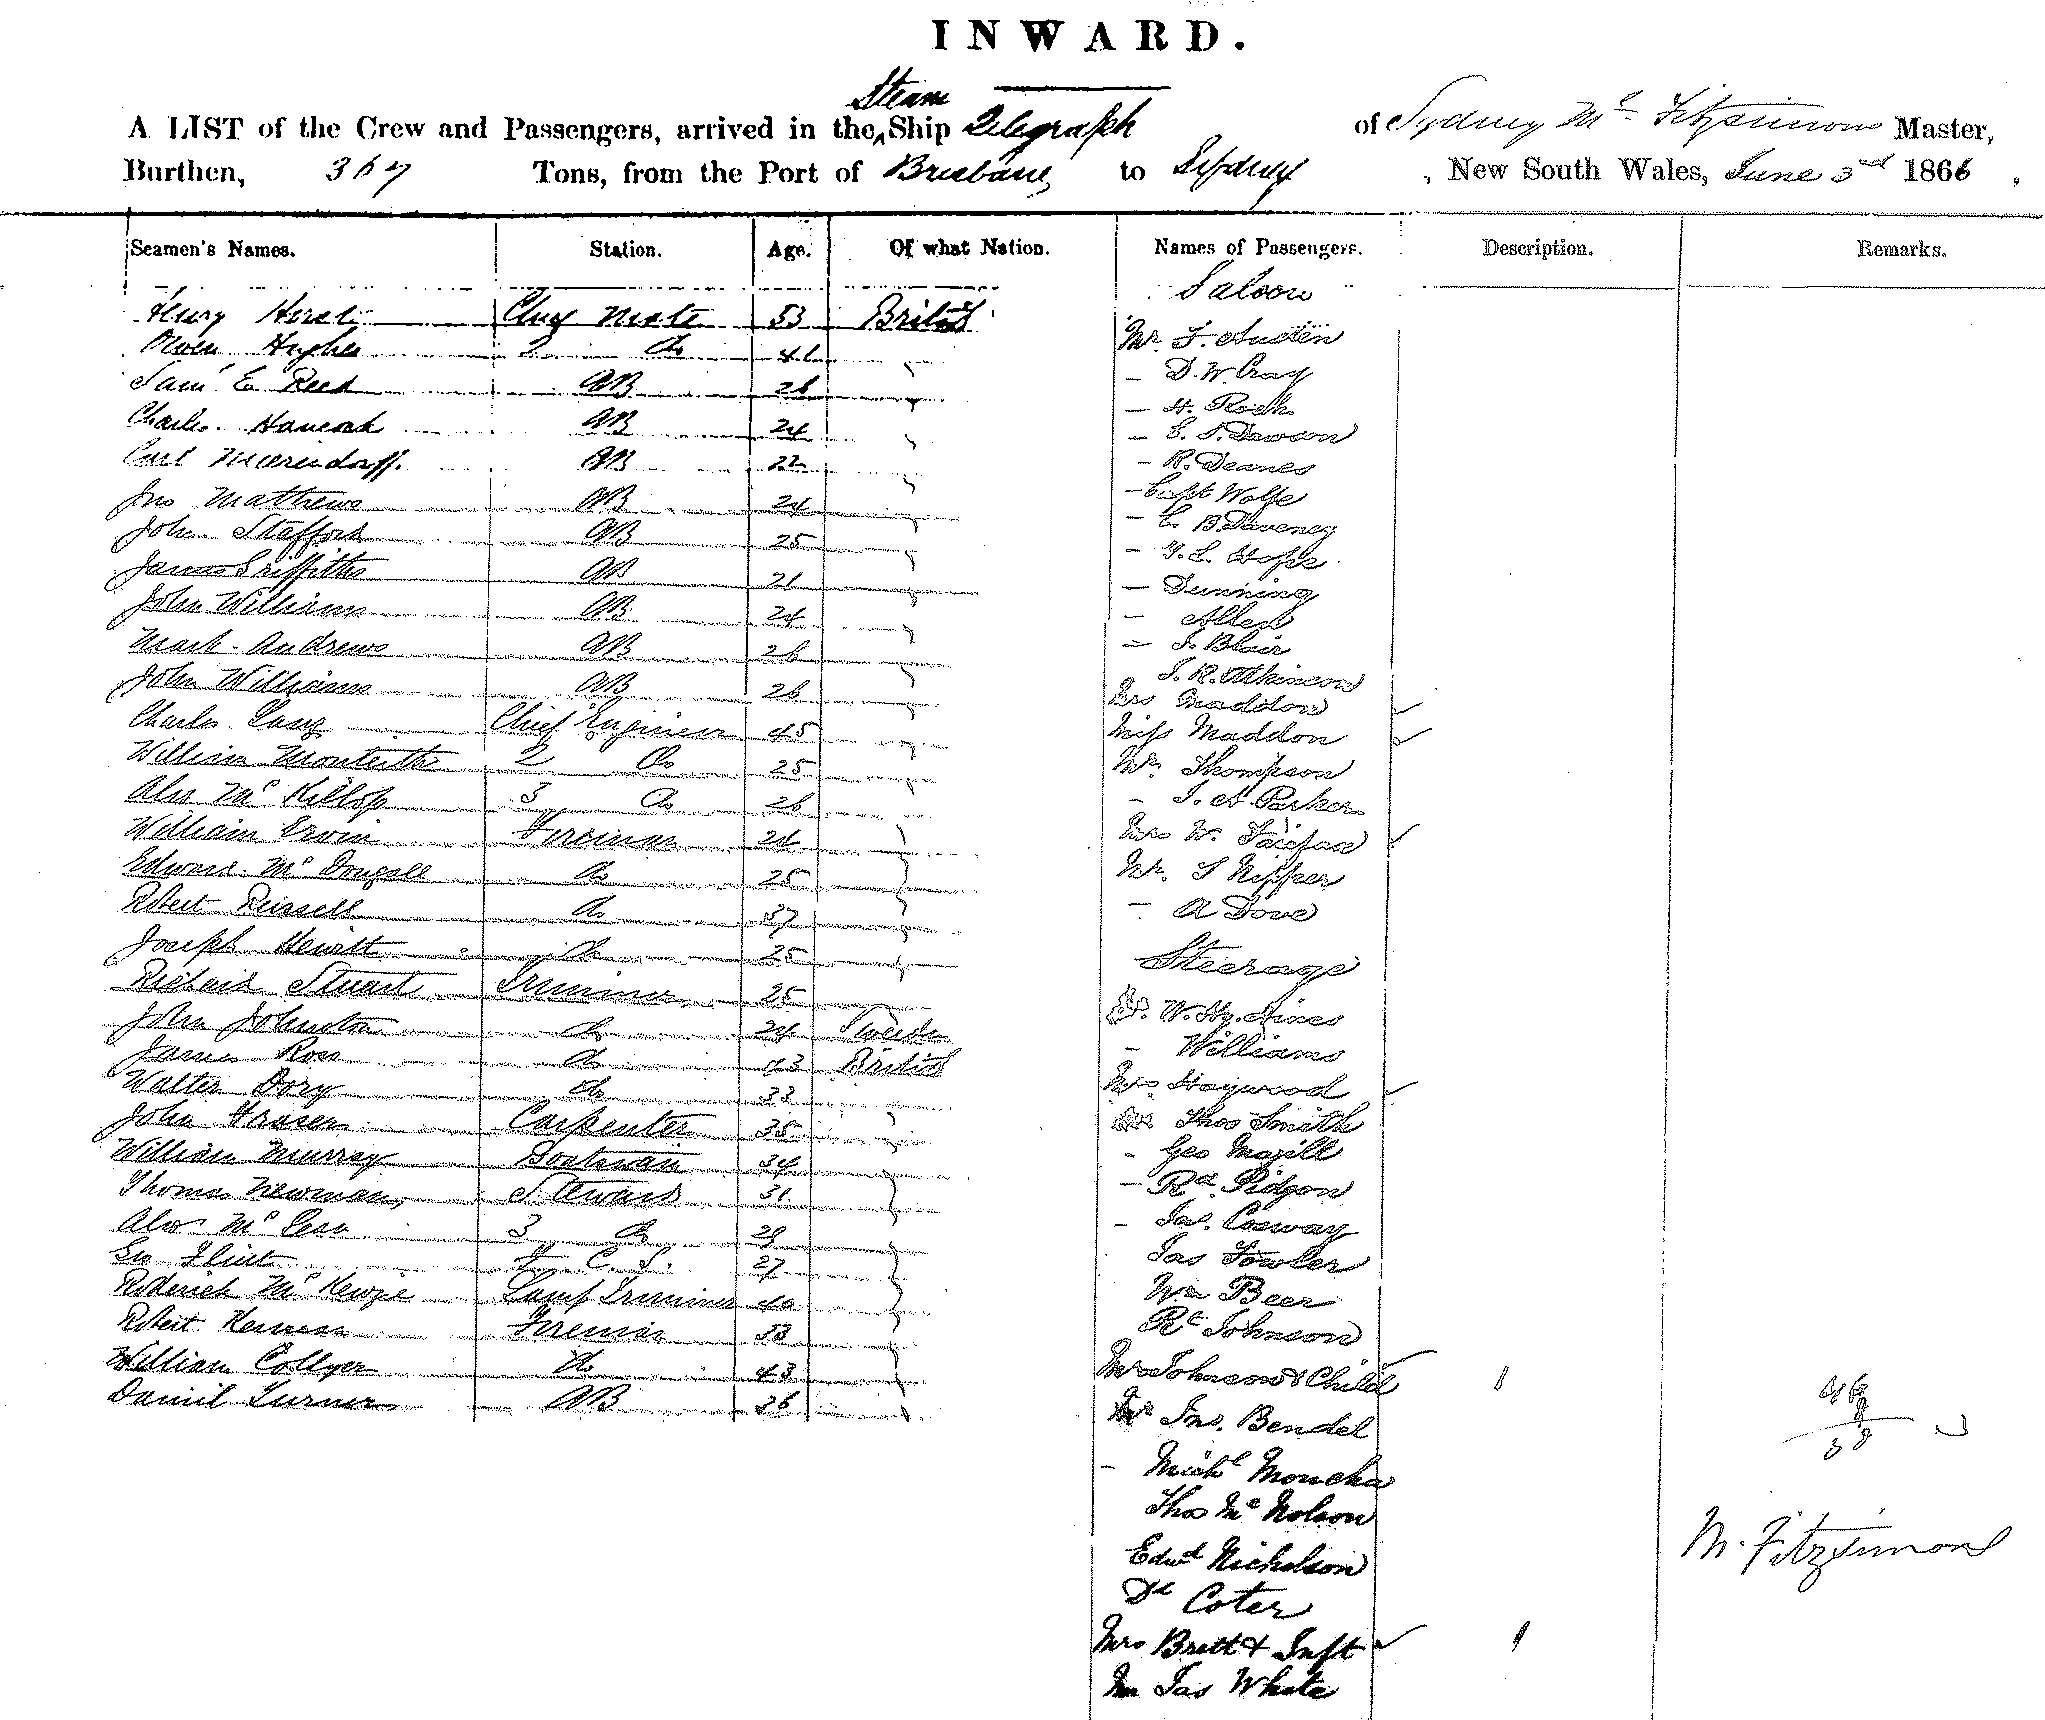 INWARD.
Steam
A LIST of the Crew and Passengers, arrived in the Ship Telegraph of Sydney Mr Fitzsimons Master,
Burthen, 367 Tons, from the Port of Brisbane to Sydney, New South Wales, June 3rd 1866
Seamen's Names. Station. Age. Of what Nation. Names of Passengers. Description. Remarks.
Saloon
Henry Chief Mate 53 British
Owen Hughes 2 Do
Saml E Reed AB
Charles Hancock AB 24
Carl AB 22
Jno Mathews AB 24
John Stafford AB 25
James Griffiths AB 21
John Williams AB 24
Mark Andrews AB 26
John Williams AB 26
Charles Lang Chief Engineer 45
William Monteith 2 Do 25
Alex McKillop 3 Do 26
William Ervin Fireman 24
Edward McDougall Do 25
Robert Russell Do 37
Joseph Hewitt Do 25
Richard Stuart Trimmer 25
John Johnston Do 24 Sweden
James Ross Do 43 British
Walter Dory Do 33
John Fraser Carpenter 35
William Murray Boatswain 34
Thomas Newman Steward 31
Alex McLean 3 Do 28
Geo Flint F. C. S. 27
Roderick McKenzie Lamp Trimmer 40
Robert Fireman 53
William Collyer Do 43
Daniel Turner AB 26
Mr. F. Austin
- D. W. Cray
- H. Rock
- C. S. Dawson
- R. Deanes
- Capt Wolfe
- C. B Daveney
- G. L. Hope
- Dunning
- Allen
- J. Blair
J. R. Atkinson
Mrs Maddon
Miss Maddon
Mr. Thompson
- J. A. Parker
Mrs W. Fairfax
Mr. S Nipper
- A Dove
Steerage
W. Hy. Hines
- Williams
Mrs Haywood
Thos Smith
- Geo Magill
- Rd. Pidgon
- Jas. Cosway
Jas Fowler
Wm Beer
Rt Johnson
Mrs Johnson & Child
Mr Jno. Bendel
- Michl Moncha
Thos Mc Nolson
Edwd Nicholson
Dl Coter
Mrs Brett & Inft
Mr Jas White
M. Fitzsimons